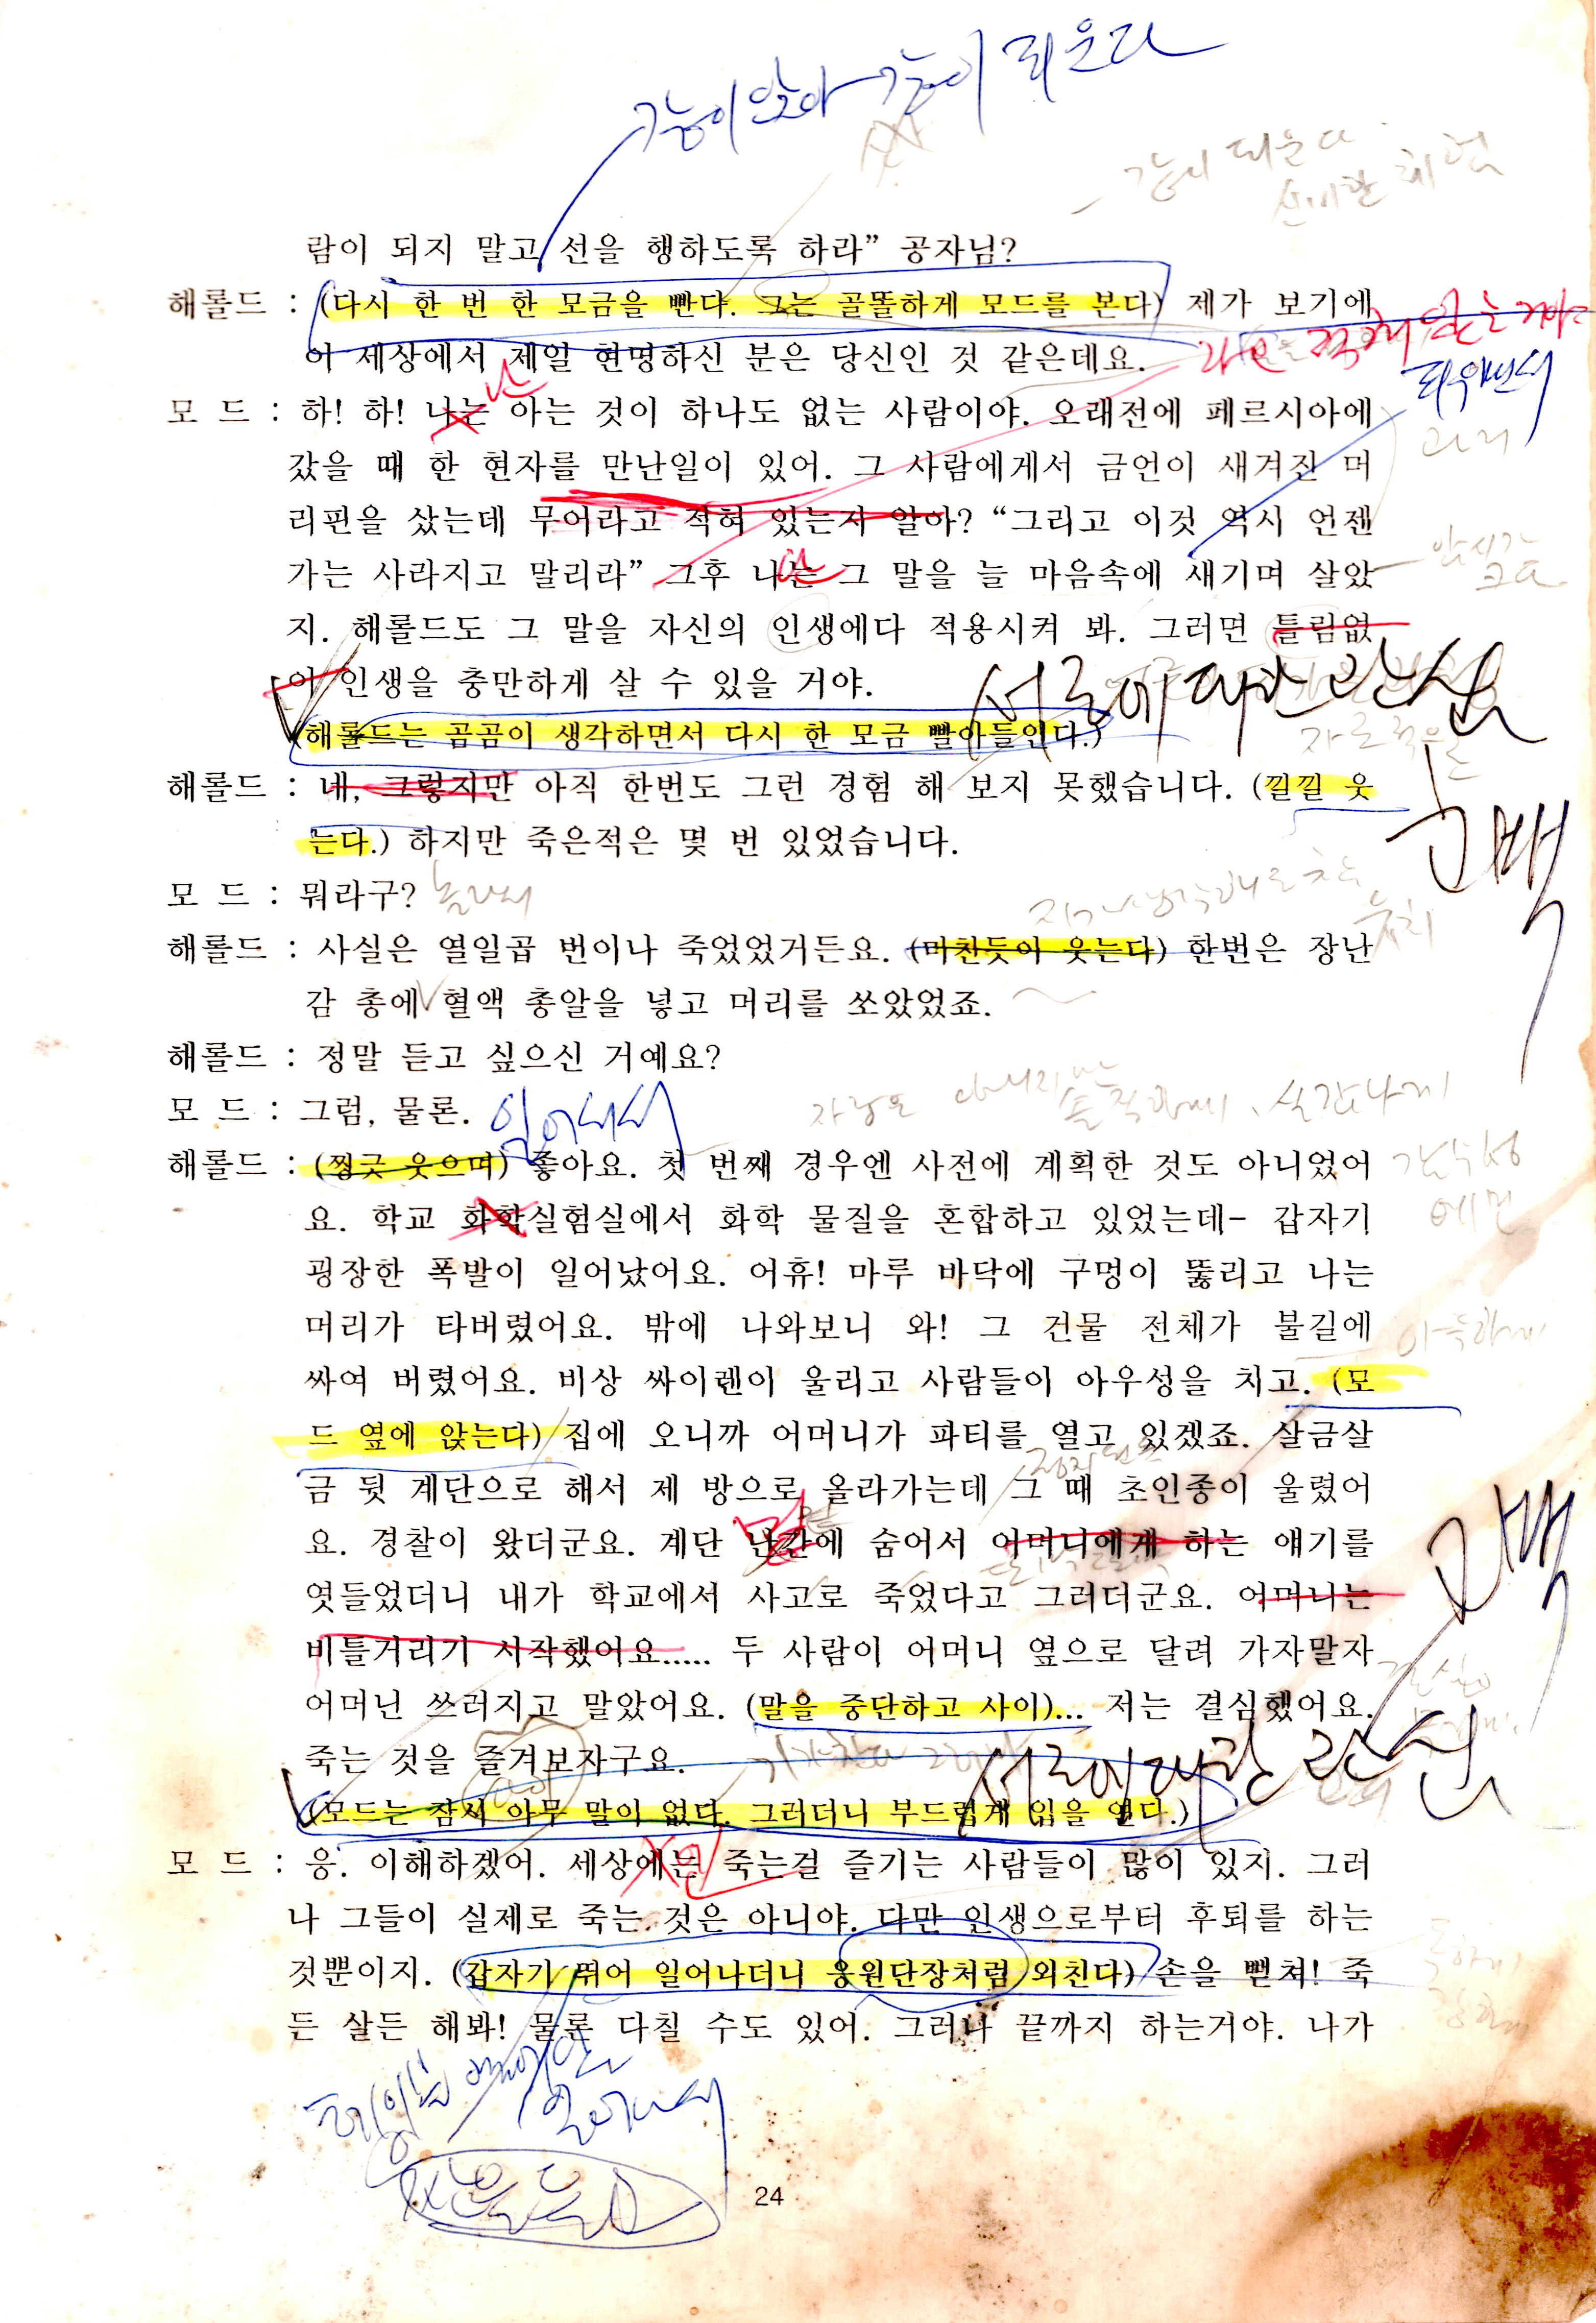 같이 앉아 같이 피운다
같이 피운다
람이 되지 말고 선을 행하도록 하라” 공자님?
해롤드 : (다시 한 번 한 모금을 빤다. 그는 골똘하게 모드를 본다) 제가 보기에
이 세상에서 제일 현명하신 분은 당신인 것 같은데요.
피우면서
난
모 드 : 하! 하! 나는 아는 것이 하나도 없는 사람이야. 오래전에 페르시아에
갔을 때 한 현자를 만난일이 있어. 그 사람에게서 금언이 새겨진 머
리핀을 샀는데 무어라고 적혀 있는지 알아? “그리고 이것 역시 언젠
가는 사라지고 말리라” 그후 나는 그 말을 늘 마음속에 새기며 살았
난
지. 해롤드도 그 말을 자신의 인생에다 적용시켜 봐. 그러면 틀림없
이 인생을 충만하게 살 수 있을 거야.
서로에 대한 관심
(해롤드는 곰곰이 생각하면서 다시 한 모금 빨아들인다.)
해롤드 : 네, 그렇지만 아직 한번도 그런 경험 해 보지 못했습니다. (낄낄 웃
는다.) 하지만 죽은적은 몇 번 있었습니다.
고백
모 드 : 뭐라구? 놀라서
해롤드 : 사실은 열일곱 번이나 죽었었거든요. (미친듯이 웃는다) 한번은 장난
감 총에 혈액 총알을 넣고 머리를 쏘았었죠.
해롤드 : 정말 듣고 싶으신 거예요?
모 드 : 그럼, 물론. 일어나서
실감나게
해롤드 : (찡긋 웃으며) 좋아요. 첫 번째 경우엔 사전에 계획한 것도 아니었어
요. 학교 화학실험실에서 화학 물질을 혼합하고 있었는데- 갑자기
굉장한 폭발이 일어났어요. 어휴! 마루 바닥에 구멍이 뚫리고 나는
머리가 타버렸어요. 밖에 나와보니 와! 그 건물 전체가 불길에
싸여 버렸어요. 비상 싸이렌이 울리고 사람들이 아우성을 치고. (모
드 옆에 앉는다) 집에 오니까 어머니가 파티를 열고 있겠죠. 살금살
금 뒷 계단으로 해서 제 방으로 올라가는데 그 때 초인종이 울렸어
요. 경찰이 왔더군요. 계단 난간에 숨어서 어머니에게 하는 얘기를
엿들었더니 내가 학교에서 사고로 죽었다고 그러더군요. 어머니는
고백
비틀거리기 시작했어요..... 두 사람이 어머니 옆으로 달려 가자말자
어머닌 쓰러지고 말았어요. (말을 중단하고 사이)... 저는 결심했어요.
죽는 것을 즐겨보자구요.
서로에 대한 관심
(모드는 잠시 아무 말이 없다. 그러더니 부드럽게 입을 연다.)
모 드 : 응. 이해하겠어. 세상에는 죽는걸 즐기는 사람들이 많이 있지. 그러
나 그들이 실제로 죽는 것은 아니야. 다만 인생으로부터 후퇴를 하는
것뿐이지. (갑자기 뛰어 일어나더니 응원단장처럼 외친다) 손을 뻗쳐! 죽
든 살든 해봐! 물론 다칠 수도 있어. 그러나 끝까지 하는거야. 나가
일어나서
24